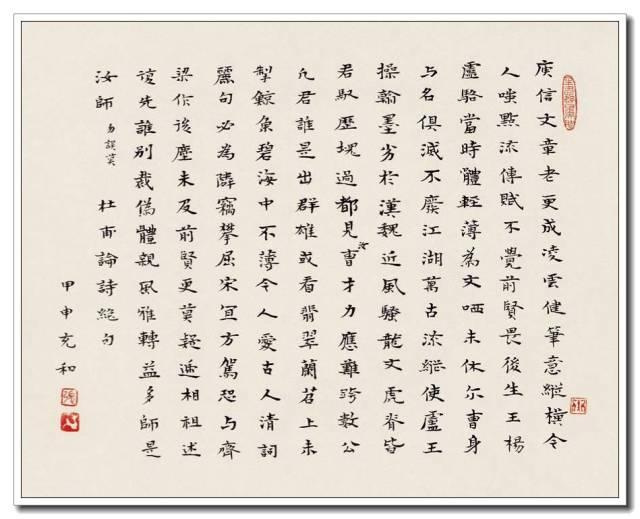 庾信文章老更成凌雲健筆意縱橫今
人嗤點流傳賦不覺前賢畏後生王楊
盧駱當時體輕薄為文哂未休尔曹身
与名俱滅不廢江湖萬古流縱使盧王
操翰墨劣於漢魏近風騷龍文虎脊皆
君馭歷塊過都見汝曹才力應難跨數公
凡君誰是出群雄或看翡翠蘭苕上未
掣鯨魚碧海中不薄今人愛古人清詞
麗句必為鄰竊攀屈宋宜方駕恐与齊
梁作後塵未及前賢更莫疑遞相祖述
復先誰別裁偽體親風雅轉益多師是
汝師 杜甫論詩絕句
甲申充和